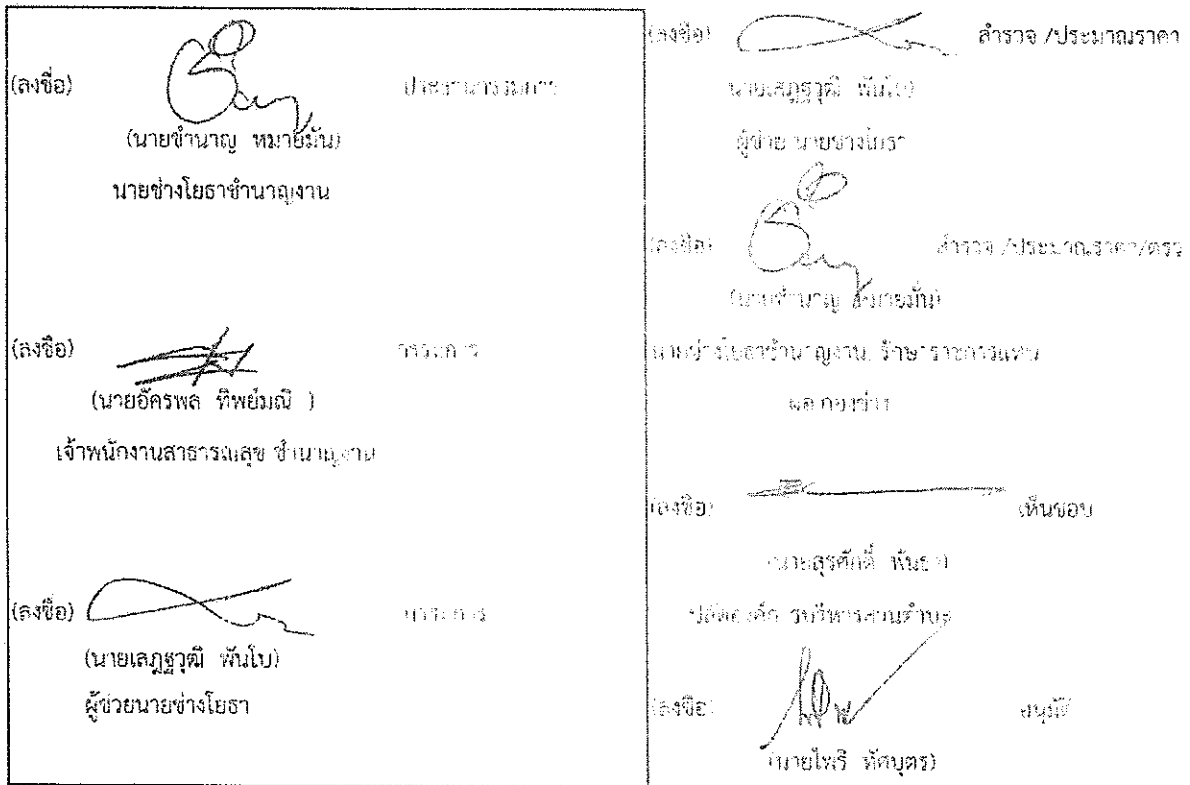 (ลงชื่อ) ประธานกรรมการ
(นายชำนาญ หมายมั่น)
นายช่างโยธาชำนาญงาน
(ลงชื่อ) กรรมการ
(นายอัครพล ทิพย์มณี )
เจ้าพนักงานสาธารณสุข ชำนาญงาน
(ลงชื่อ) กรรมการ
(นายเลฎฐวุฒิ พันโบ)
ผู้ช่วยนายช่างโยธา
(ลงชื่อ) สำรวจ /ประมาณราคา
นายเลฎฐวุฒิ พันโบ)
ผู้ช่วย นายช่างโยธา
(ลงชื่อ) สำรวจ /ประมาณราคา/ตรว
(นายชำนาญ หมายมั่น)
นายช่างโยธาชำนาญงาน รักษาราชการแทน
ผอ.กองช่าง
(ลงชื่อ) เห็นชอบ
(นายสุรศักดิ์
ปลัดองค์การบริหารส่วนตำบล
(ลงชื่อ) อนุมัติ
(นายไพรี ทัศบุตร)